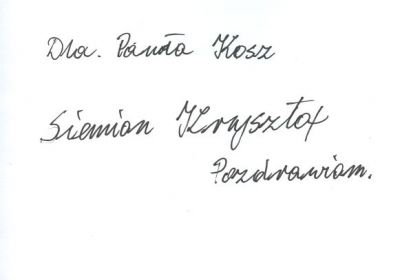 Dla. Pawła Kosz
Siemion Krzysztof
Pozdrawiam.